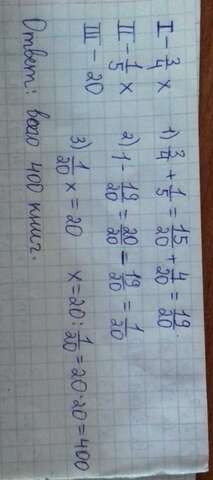 I - 3/4 x
II - 1/5 x
III - 20
1) 3/4 + 1/5 = 15/20 + 4/20 = 19/20.
2) 1 - 19/20 = 20/20 = 19/20 = 1/20
3) 1/20 x = 20 x = 20 : 1/20 = 20·20 = 400
Ответ: всего 400 книг.